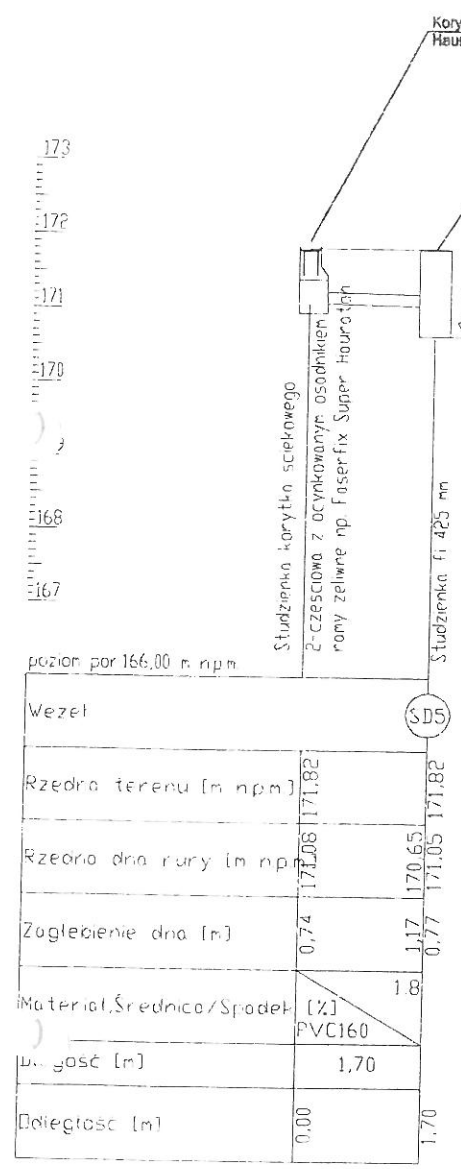 Kory
Haus
173
172
171
170
168
167
Studzienka korytka sciekowego
2-częsciowa z ocynkowanym osodnikiem
ramy zeliwne np. Faserfix Super Houraton
Studzienka fi 425 mm
poziom por 166,00 m npm
Wezeł
SD5
Rzędna terenu [m npm]
171,82
171,82
Rzedna dna rury [m npm
171,08
170,65
171,05
Zagłebienie dna [m]
0,74
1,17
0,77
Materiał,Średnica/Spadek [%]
1.8
PVC160
ość [m]
1,70
Odległość [m]
0.00
1,70